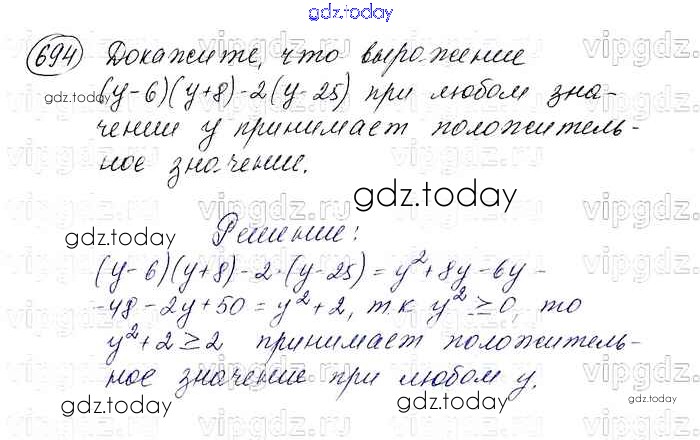 gdz.today
694 Докажите, что выражение
(y-6)(y+8)-2(y-25) при любом зна-
чении y принимает положитель-
ное значение.
gdz.today
gdz.today
gdz.today
Решение:
(y-6)(y+8)-2·(y-25)=y²+8y-6y-
-48-2y+50=y²+2, т.к y²≥0, то
y²+2≥2 принимает положитель-
ное значение при любом y.
gdz.today
gdz.today
gdz.today
vipgdz.ru